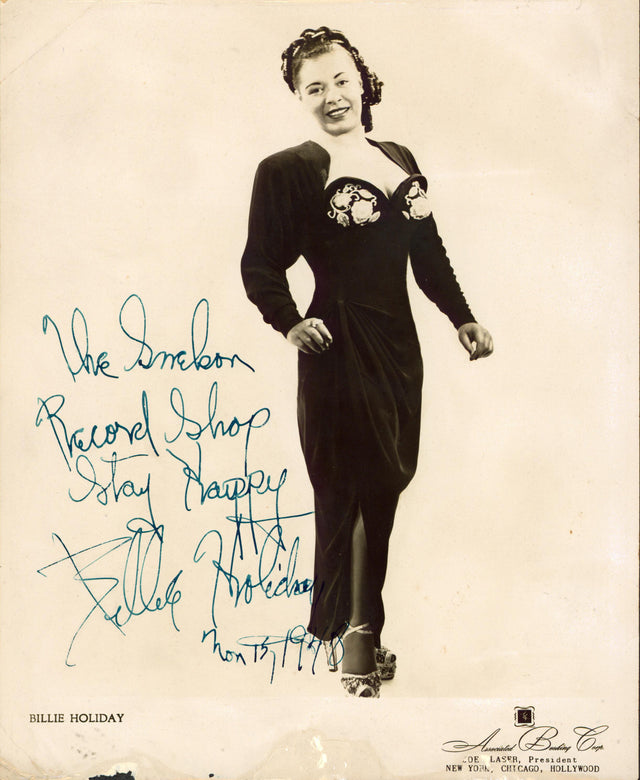 The
Record Shop
Stay Happy
Billie Holiday
Nov 15, 1948
BILLIE HOLIDAY
Associated Booking Corp.
OE LASER, President
NEW YORK, CHICAGO, HOLLYWOOD